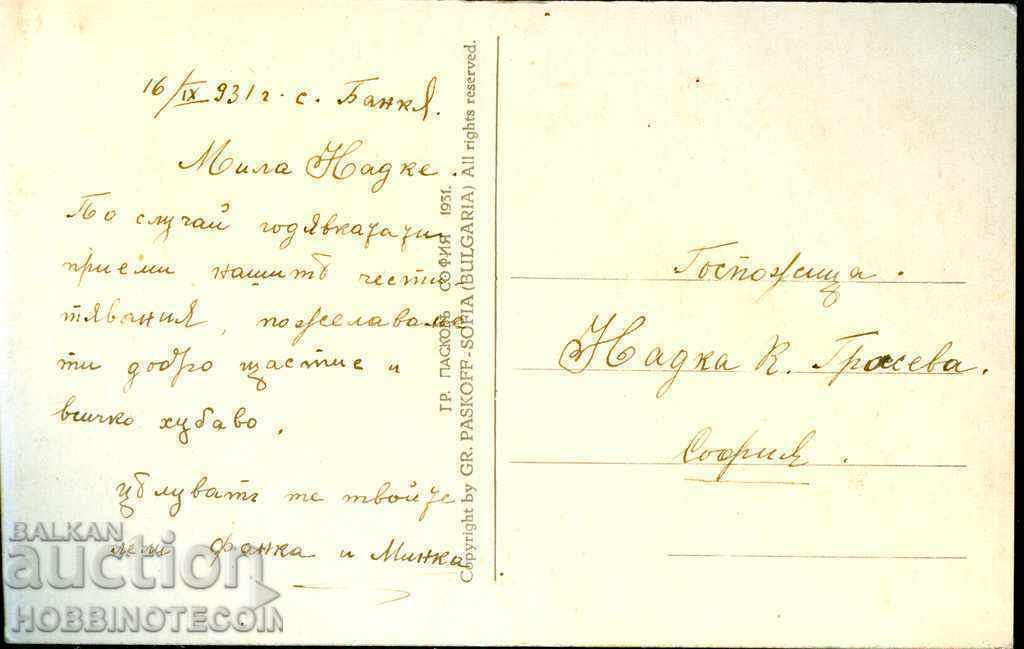 16/IX 931 г. с. Банкя.
Мила Надке.
По случай
приеми нашитѣ чести-
тявания, пожелаваме
ти добро щастие и
всичко хубаво.
цѣлуватъ те твойте
лели Фанка и Минка
ГР. ПАСКОВЪ СОФИЯ 1931.
Copyright by GR. PASKOFF-SOFIA (BULGARIA) All rights reserved.
Госпожица.
Надка К.
София.
BALKAN
auction
HOBBINOTECOIN